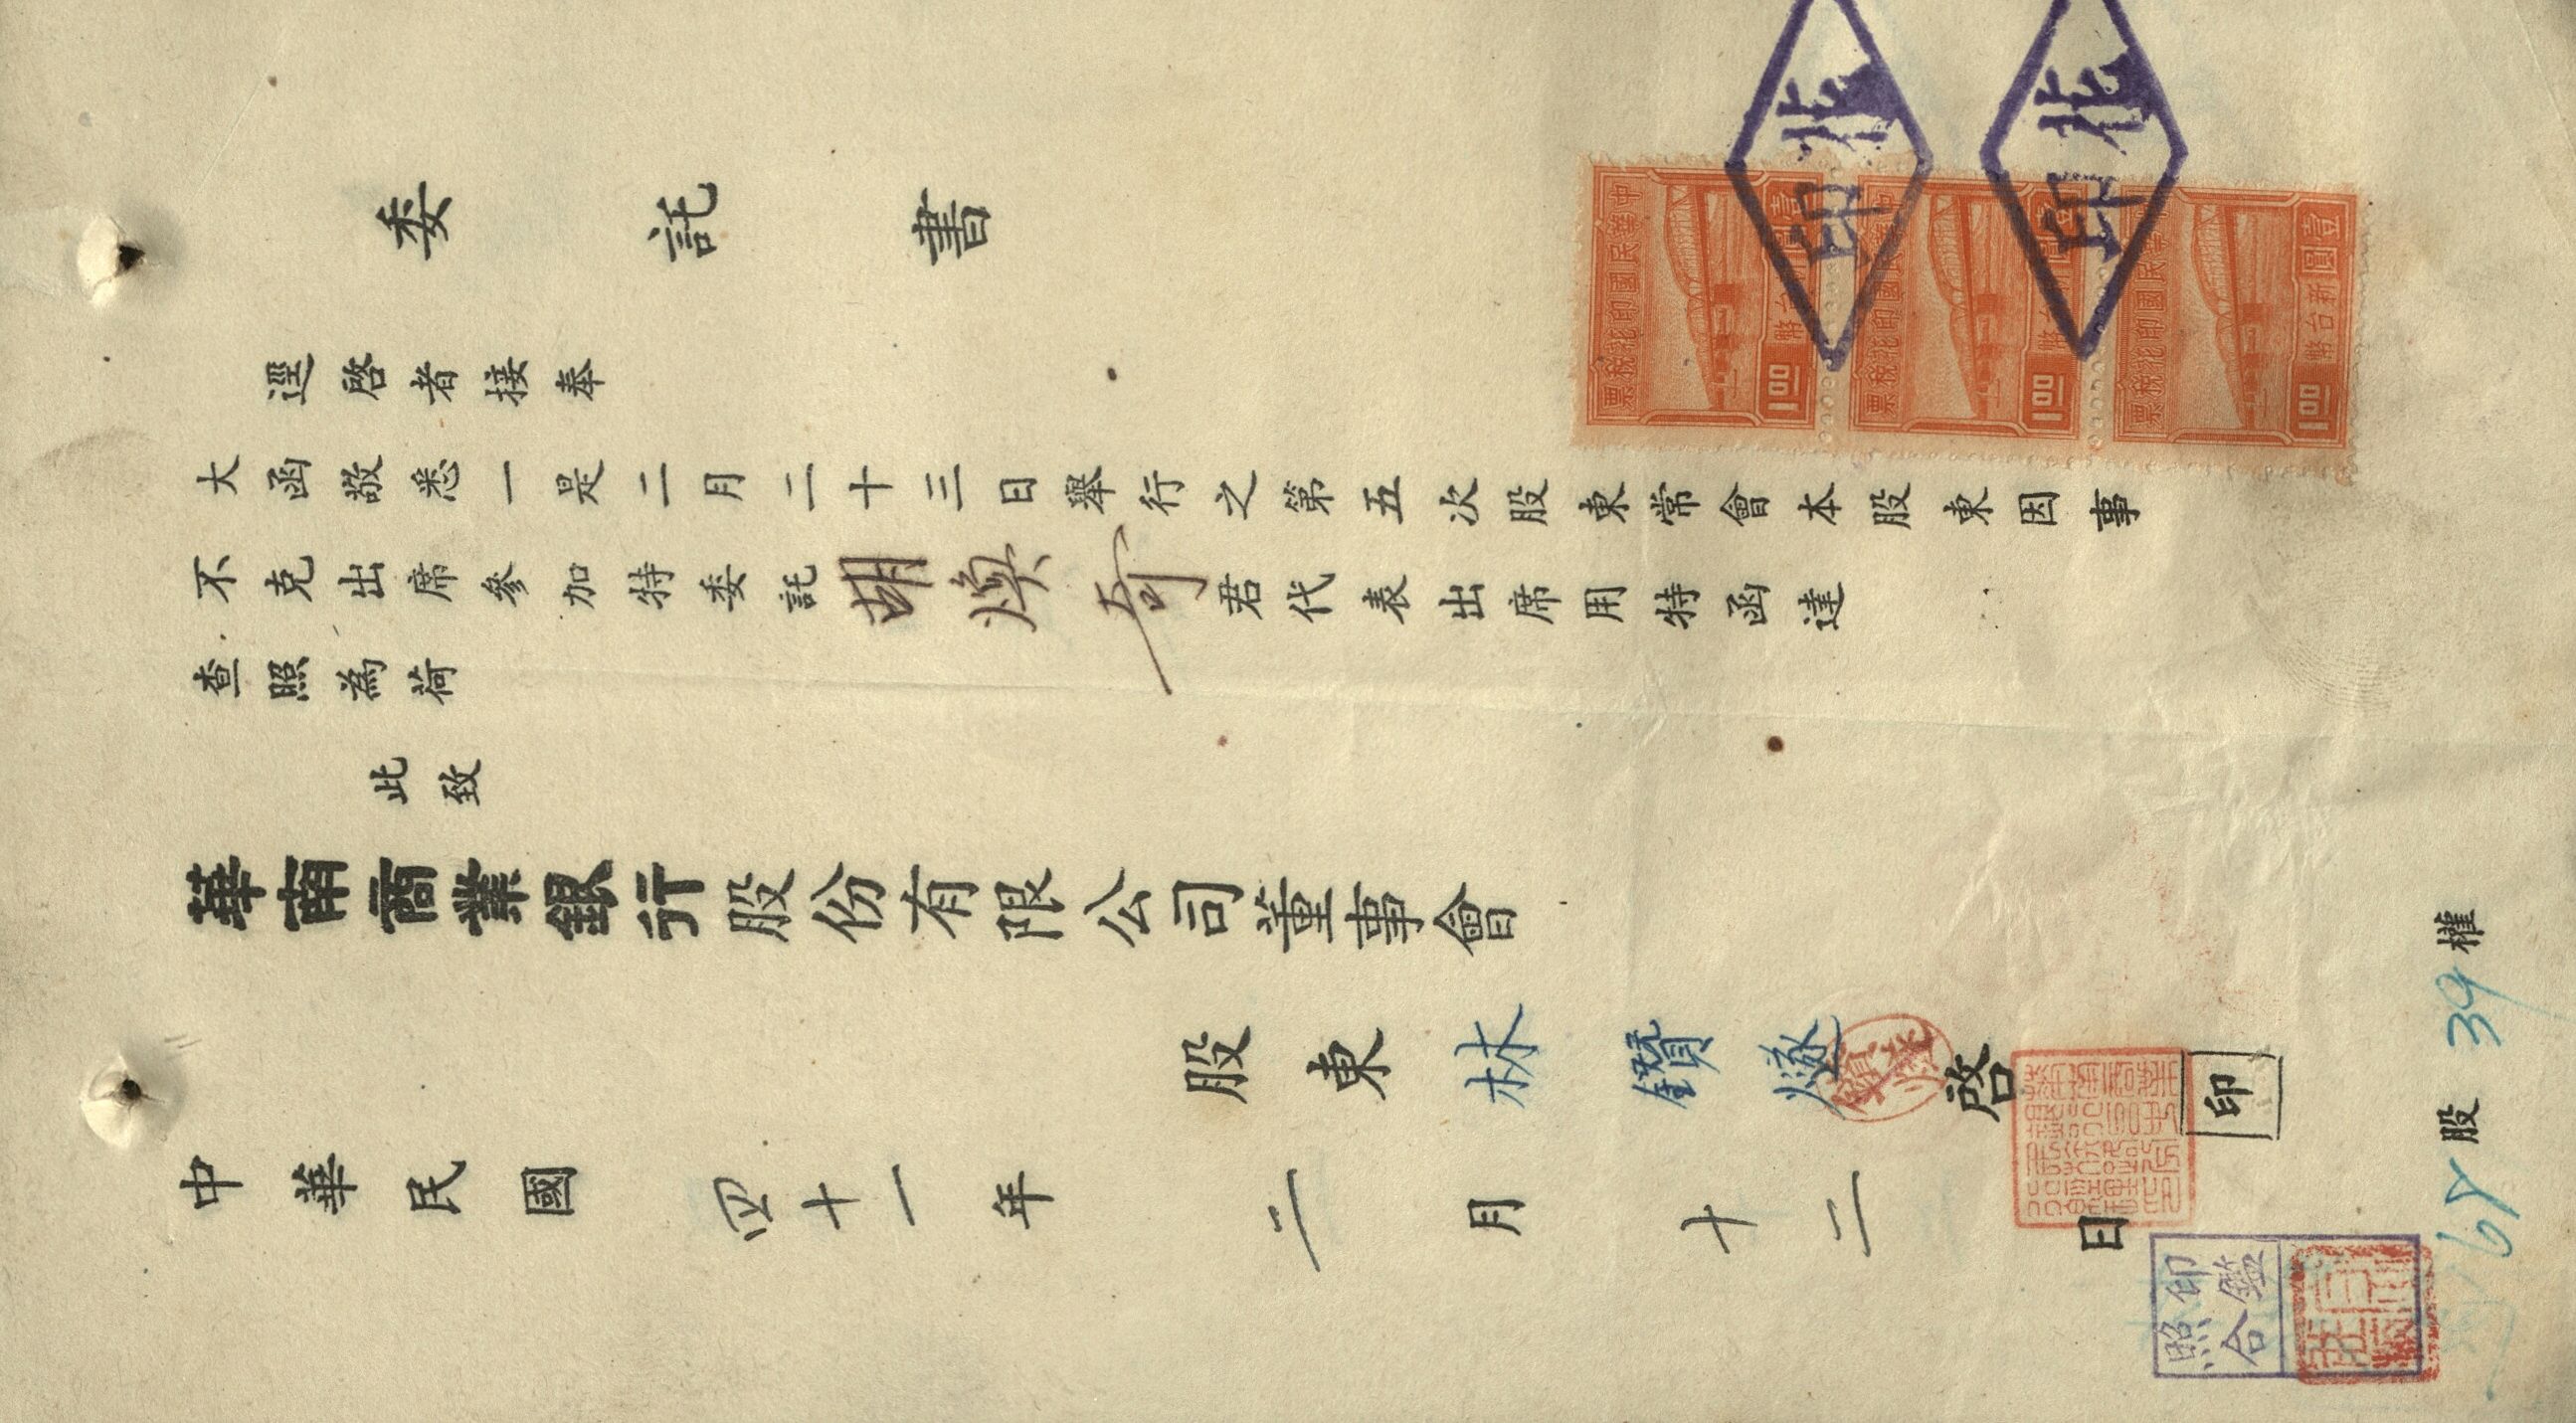 委託書
逕啓者接奉
大函敬悉一是二月二十三日舉行之第五次股東常會本股東因事
不克出席參加特委託胡煥奇君代表出席用特函達
查照為荷
此致
華南商業銀行股份有限公司董事會
股東林鑽燧啓
印
中華民國四十一年二月十二日
68股39權
印鑑
照合
印花
印花
中華民國印花稅票
壹圓新台幣
1.00
中華民國印花稅票
壹圓新台幣
1.00
中華民國印花稅票
壹圓新台幣
1.00